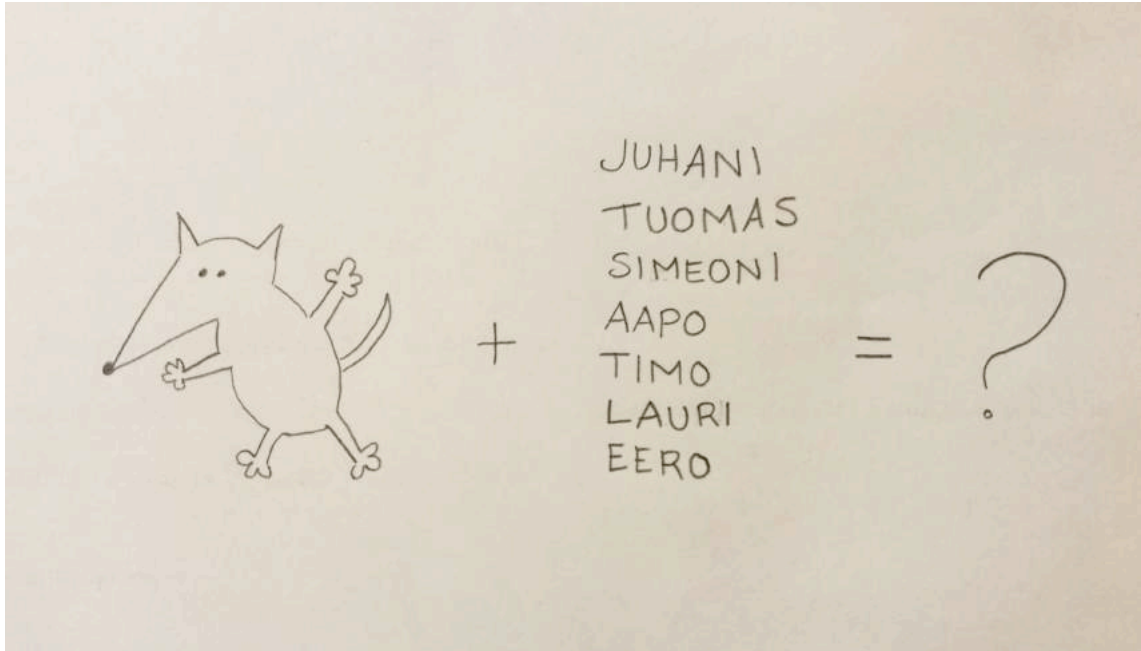 JUHANI
TUOMAS
SIMEONI
+ AAPO = ?
TIMO
LAURI
EERO